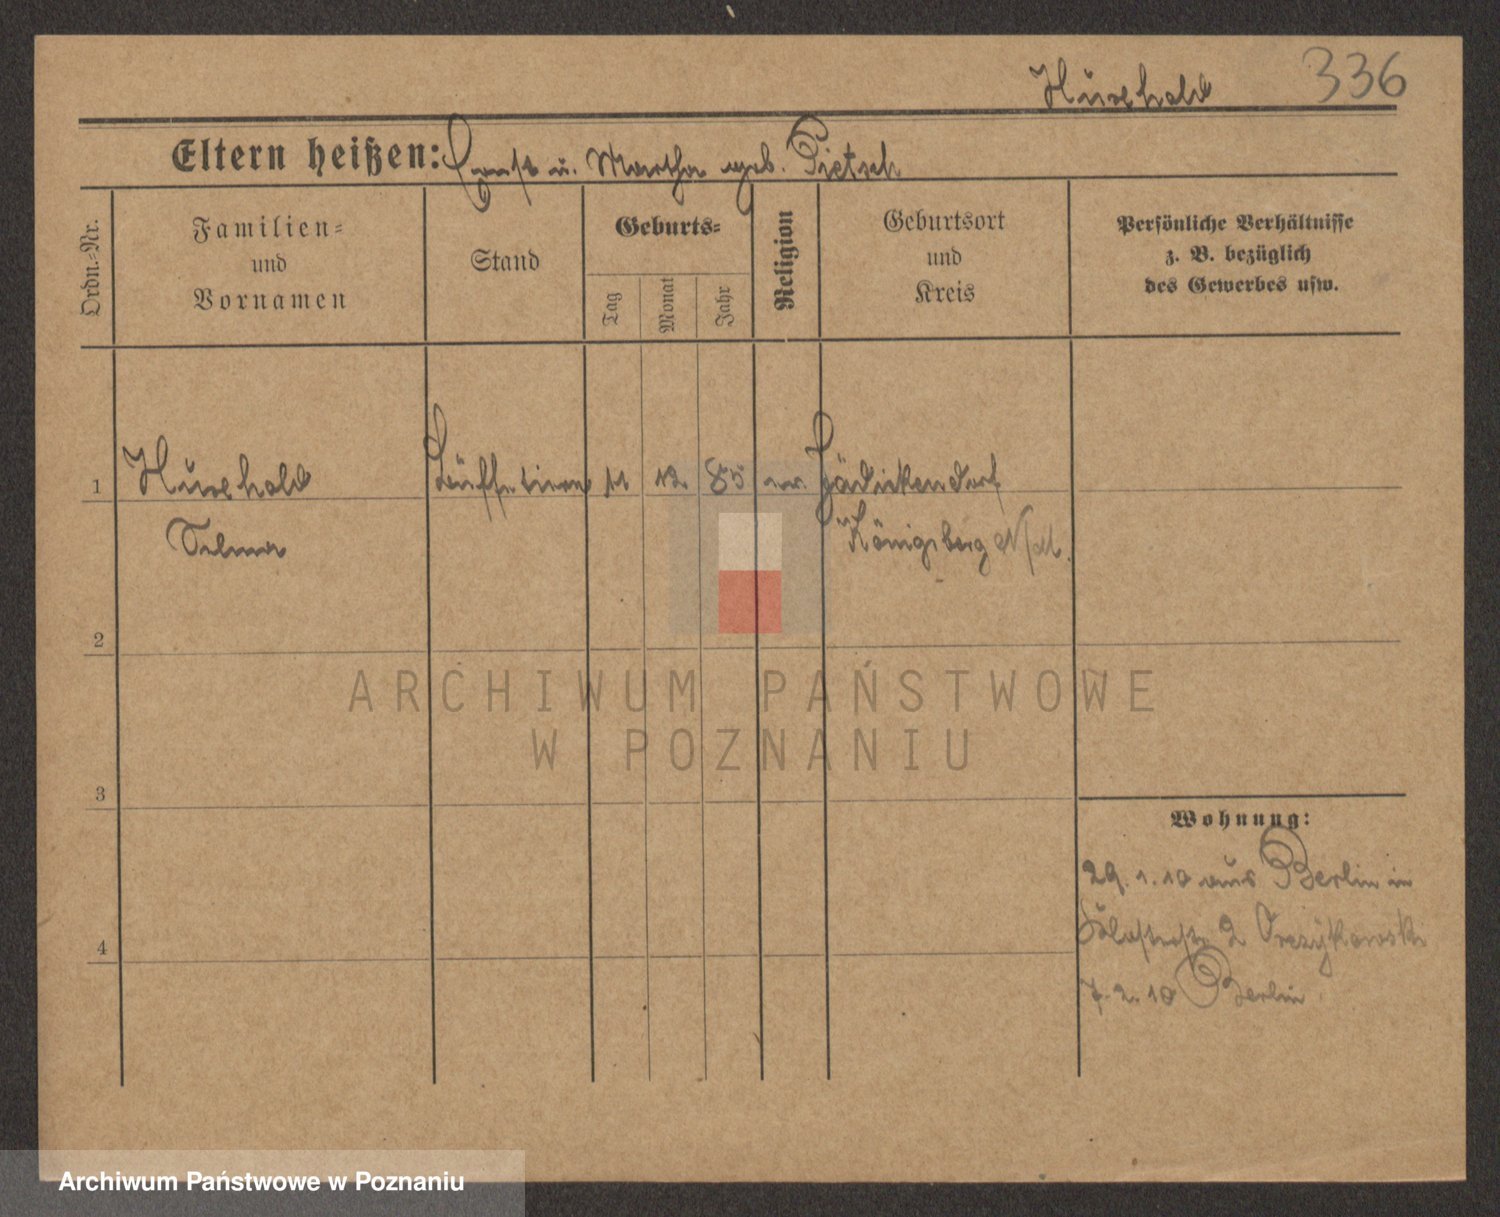 Husehald 336
Eltern heißen: Ernst u. Martha geb. Pietsch
Ordn.-Nr.
Familien-
und
Vornamen
Stand
Geburts-
Tag
Monat
Jahr
Religion
Geburtsort
und
Kreis
Persönliche Verhältnisse
z. B. bezüglich
des Gewerbes usw.
1 11 12. 85 ev. Gädickendorf
Selma Königsberg N/M.
2
3
4
Wohnung:
29. 1. 10 aus Berlin in
2
7. 2. 10 Berlin
ARCHIWUM PAŃSTWOWE
W POZNANIU
Archiwum Państwowe w Poznaniu